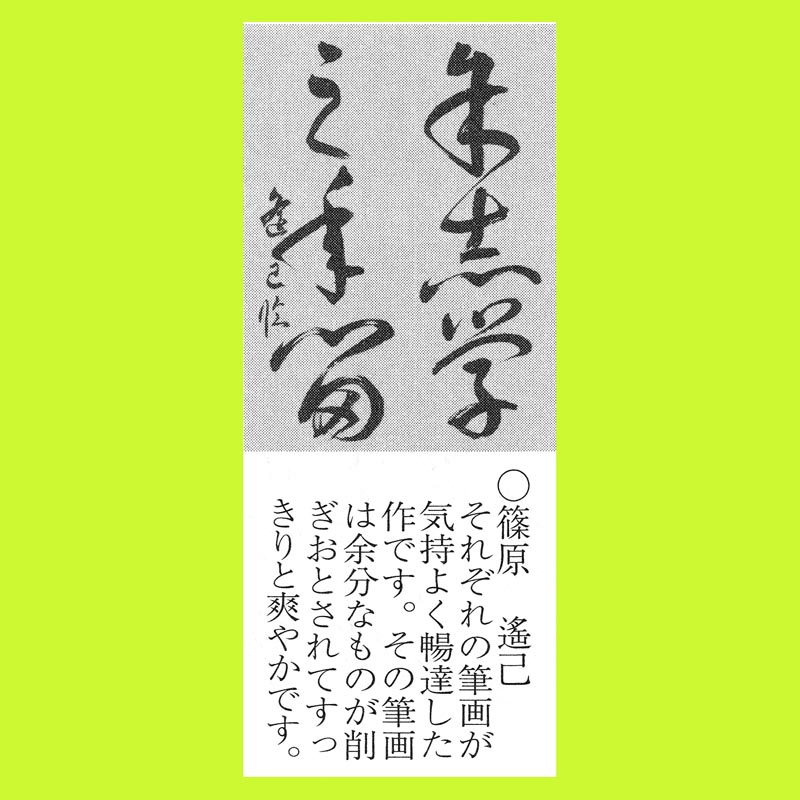 余志学
之年留
遙己臨
○篠原　遙己
それぞれの筆画が
気持よく暢達した
作です。その筆画
は余分なものが削
ぎおとされてすっ
きりと爽やかです。